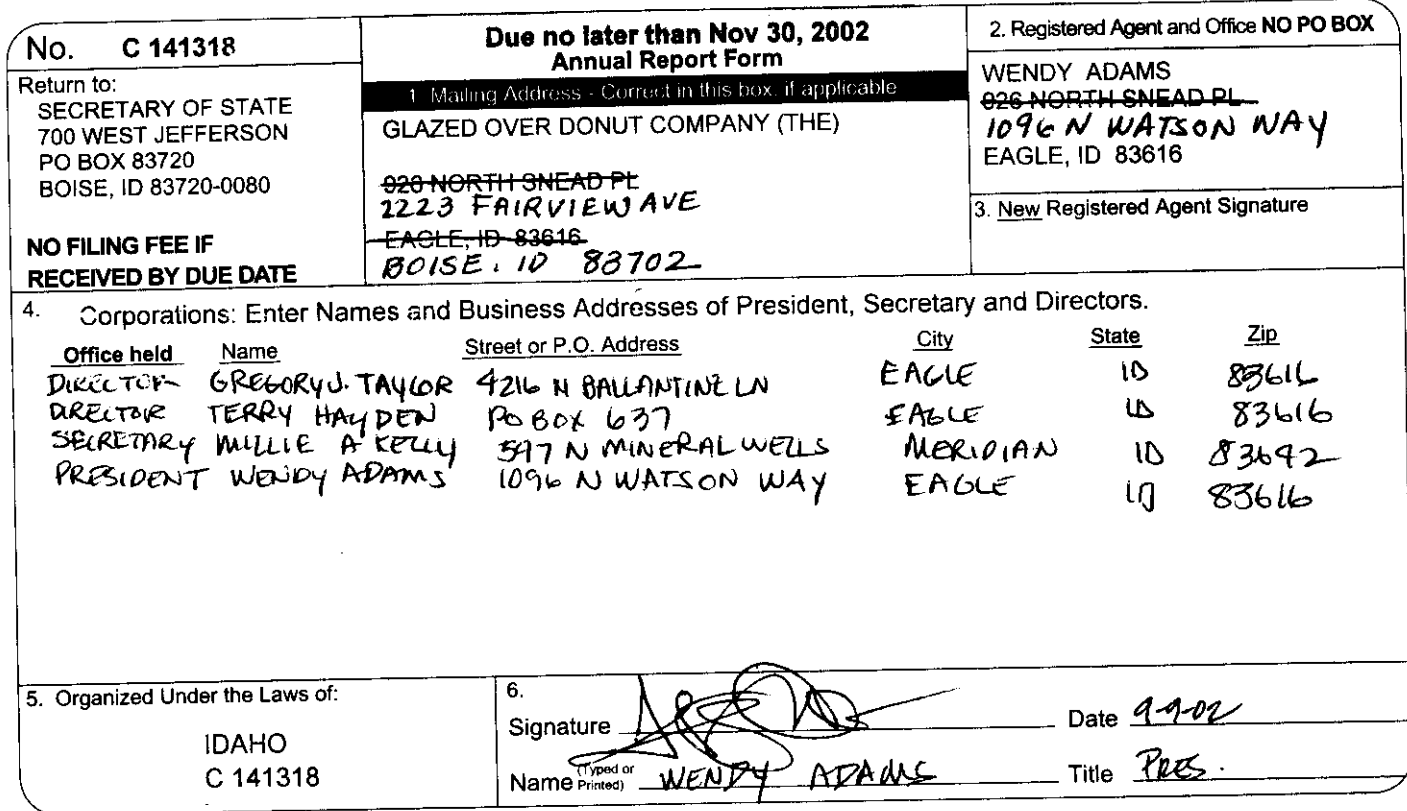 No. C 141318
Return to:
SECRETARY OF STATE
700 WEST JEFFERSON
PO BOX 83720
BOISE, ID 83720-0080
NO FILING FEE IF
RECEIVED BY DUE DATE
Due no later than Nov 30, 2002
Annual Report Form
1. Mailing Address - Correct in this box, if applicable
GLAZED OVER DONUT COMPANY (THE)
926 NORTH SNEAD PL
2223 FAIRVIEW AVE
EAGLE, ID 83616
BOISE, ID 83702
2. Registered Agent and Office NO PO BOX
WENDY ADAMS
926 NORTH SNEAD PL
1096 N WATSON WAY
EAGLE, ID 83616
3. New Registered Agent Signature
4. Corporations: Enter Names and Business Addresses of President, Secretary and Directors.
Office held Name Street or P.O. Address City State Zip
DIRECTOR GREGORY J. TAYLOR 4216 N BALLANTINE LN EAGLE ID 83616
DIRECTOR TERRY HAYDEN PO BOX 637 EAGLE ID 83616
SECRETARY MILLIE A KELLY 597 N MINERAL WELLS MERIDIAN ID 83642
PRESIDENT WENDY ADAMS 1096 N WATSON WAY EAGLE ID 83616
5. Organized Under the Laws of:
IDAHO
C 141318
6.
Signature Date 9-9-02
Name (Typed or Printed) WENDY ADAMS Title PRES.